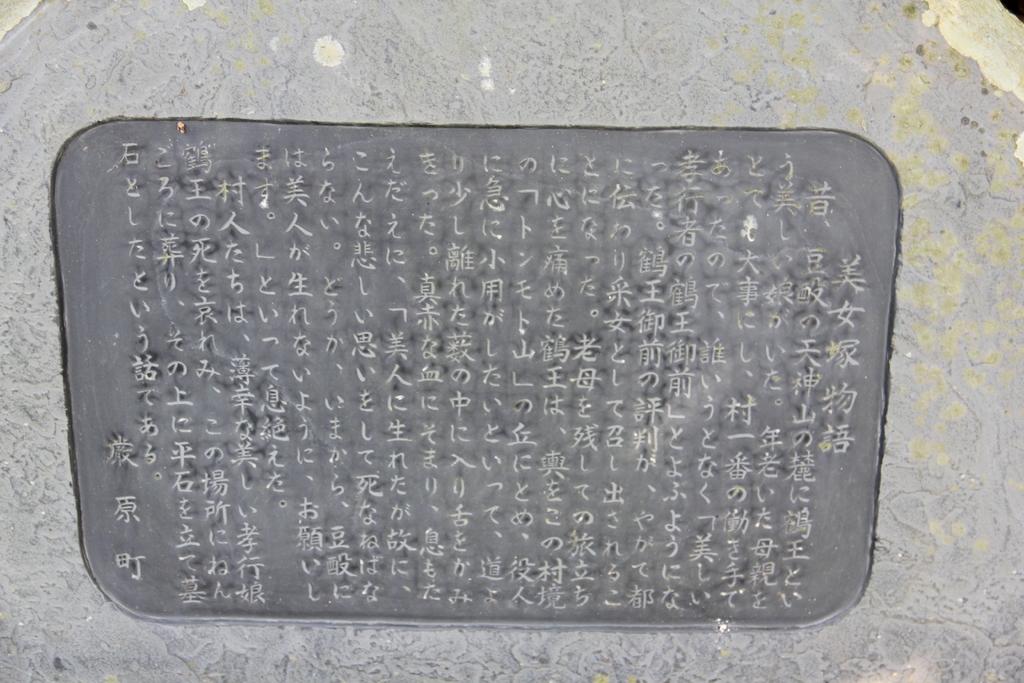 美女塚物語
昔、豆酘の天神山の麓に鶴王とい
う美しい娘がいた。年老いた母親を
とても大事にし、村一番の働き手で
あったので、誰いうとなく「美しい
孝行者の鶴王御前」とよぶようにな
った。鶴王御前の評判が、やがて都
に伝わり采女として召し出されるこ
とになった。老母を残しての旅立ち
に心を痛めた鶴王は、輿をこの村境
の「トンモト山」の丘にとめ、役人
に急に小用がしたいといって、道よ
り少し離れた薮の中に入り舌をかみ
きった。真赤な血にそまり、息もた
えだえに、「美人に生れたが故に、
こんな悲しい思いをして死なねばな
らない。どうか、いまから、豆酘に
は美人が生れないように、お願いし
ます。」といって息絶えた。
村人たちは、薄幸な美しい孝行娘
鶴王の死を哀れみ、この場所にねん
ごろに葬り、その上に平石を立て墓
石としたという話である。
厳原町